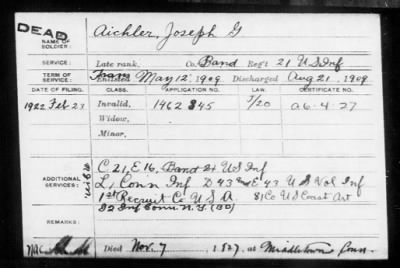 DEAD
NAME OF SOLDIER: Aichler, Joseph G
SERVICE: Late rank, Co. Band Reg't 21 U S Inf
TERM OF SERVICE: Enlisted May 12, 1909 Discharged Aug 21, 1909
DATE OF FILING. CLASS. APPLICATION NO. LAW. CERTIFICATE NO.
1922 Feb 23 Invalid, 1462 845 J/20 a6-4-27
Widow,
Minor,
ADDITIONAL SERVICES: C 21, E 16, Band 21 U S Inf
L, 1 Conn Inf D 43 and E 43 U S Vol Inf
1st Recruit Co U.S.A. 81 Co U S Coast Art
REMARKS:
Died Nov. 7, 1927, at Middletown Conn.